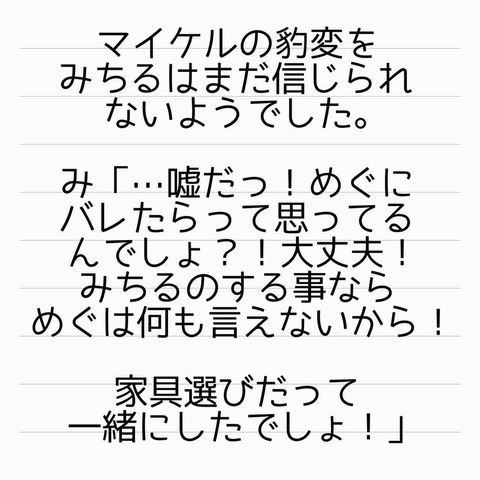 マイケルの豹変を
みちるはまだ信じられ
ないようでした。
み「…嘘だっ！めぐに
バレたらって思ってる
んでしょ？！大丈夫！
みちるのする事なら
めぐは何も言えないから！
家具選びだって
一緒にしたでしょ！」